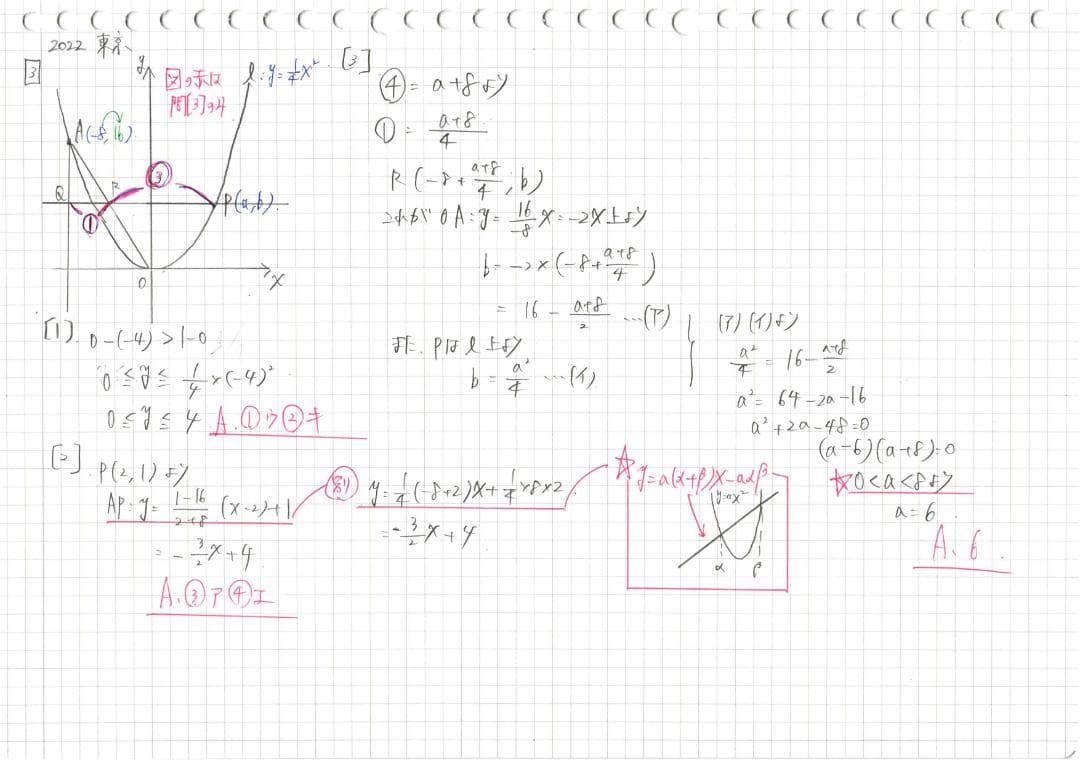 2022 東京
3
y
図の赤は
問[3]のみ
l: y=1/4x²
A(-8, 16)
Q
R
③
①
P(a,b)
O
x
[1]. 0-(-4)>1-0
0≦y≦1/4×(-4)²
0≦y≦4 A.①ウ②キ
[2]. P(2,1)より
AP: y=(1-16)/(2+8)(x-2)+1
=-3/2x+4
A.③ア④エ
別
y=1/4(-8+2)x+1/4×8×2
=-3/2x+4
☆y=a(α+β)x-aαβ
y=ax²
α β
[3]
④=a+8より
①=(a+8)/4
R(-8+(a+8)/4, b)
これがOA: y=16/-8x=-2x上より
b=-2×(-8+(a+8)/4)
=16-(a+8)/2 …(ア)
また、Pはl上より
b=a²/4 …(イ)
(ア)(イ)より
a²/4=16-(a+8)/2
a²=64-2a-16
a²+2a-48=0
(a-6)(a+8)=0
☆0<a<8より
a=6
A. 6.